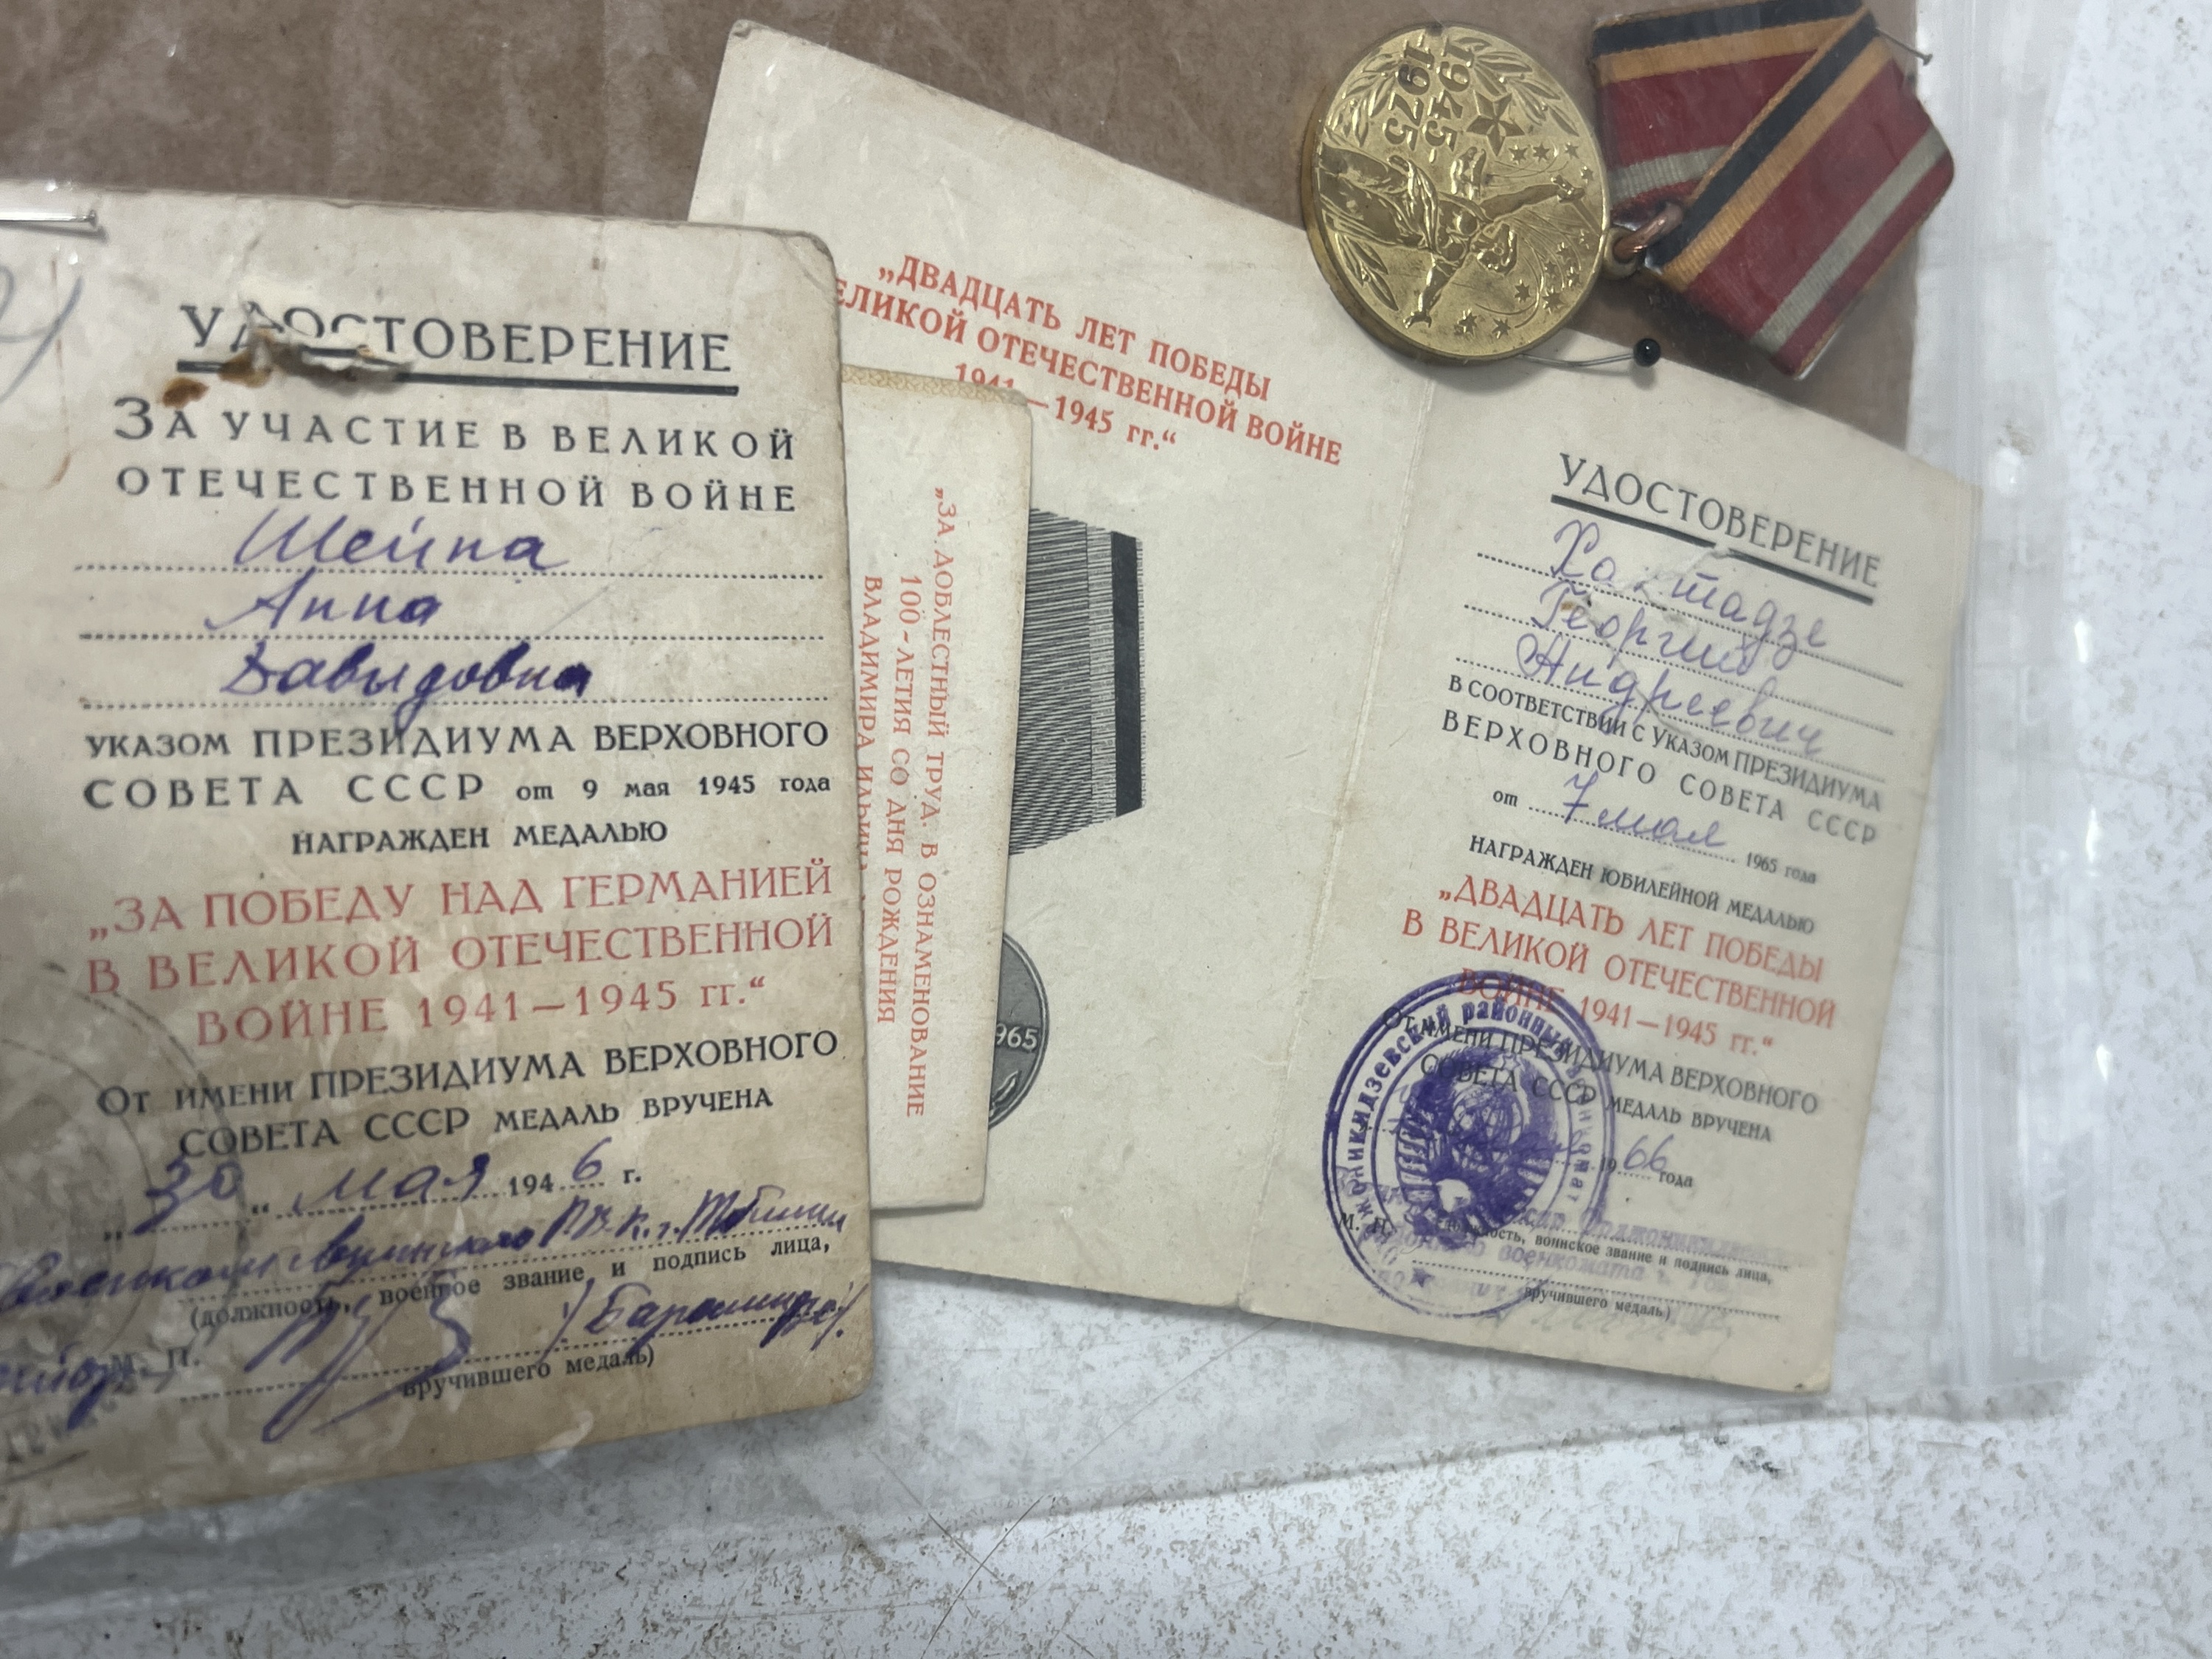 УДОСТОВЕРЕНИЕ
ЗА УЧАСТИЕ В ВЕЛИКОЙ
ОТЕЧЕСТВЕННОЙ ВОЙНЕ
Шейна
Анна
Давыдовна
УКАЗОМ ПРЕЗИДИУМА ВЕРХОВНОГО
СОВЕТА СССР от 9 мая 1945 года
НАГРАЖДЕН МЕДАЛЬЮ
„ЗА ПОБЕДУ НАД ГЕРМАНИЕЙ
В ВЕЛИКОЙ ОТЕЧЕСТВЕННОЙ
ВОЙНЕ 1941—1945 гг.“
ОТ ИМЕНИ ПРЕЗИДИУМА ВЕРХОВНОГО
СОВЕТА СССР МЕДАЛЬ ВРУЧЕНА
„30“ мая 1946 г.
Р.В.К. г. Тбилиси
(должность, военное звание и подпись лица,
М. П.
вручившего медаль)
„ЗА ДОБЛЕСТНЫЙ ТРУД. В ОЗНАМЕНОВАНИЕ
100-ЛЕТИЯ СО ДНЯ РОЖДЕНИЯ
ВЛАДИМИРА
„ДВАДЦАТЬ ЛЕТ ПОБЕДЫ
ЕЛИКОЙ ОТЕЧЕСТВЕННОЙ ВОЙНЕ
1941—1945 гг.“
965
1945
1975
УДОСТОВЕРЕНИЕ
Георгий
Андреевич
В СООТВЕТСТВИИ С УКАЗОМ ПРЕЗИДИУМА
ВЕРХОВНОГО СОВЕТА СССР
от 7 мая 1965 года
НАГРАЖДЕН ЮБИЛЕЙНОЙ МЕДАЛЬЮ
„ДВАДЦАТЬ ЛЕТ ПОБЕДЫ
В ВЕЛИКОЙ ОТЕЧЕСТВЕННОЙ
ВОЙНЕ 1941—1945 гг.“
ОТ ИМЕНИ ПРЕЗИДИУМА ВЕРХОВНОГО
СОВЕТА СССР МЕДАЛЬ ВРУЧЕНА
1966 года
М. П.
воинское звание и подпись лица,
вручившего медаль)
районный
военкомата г.